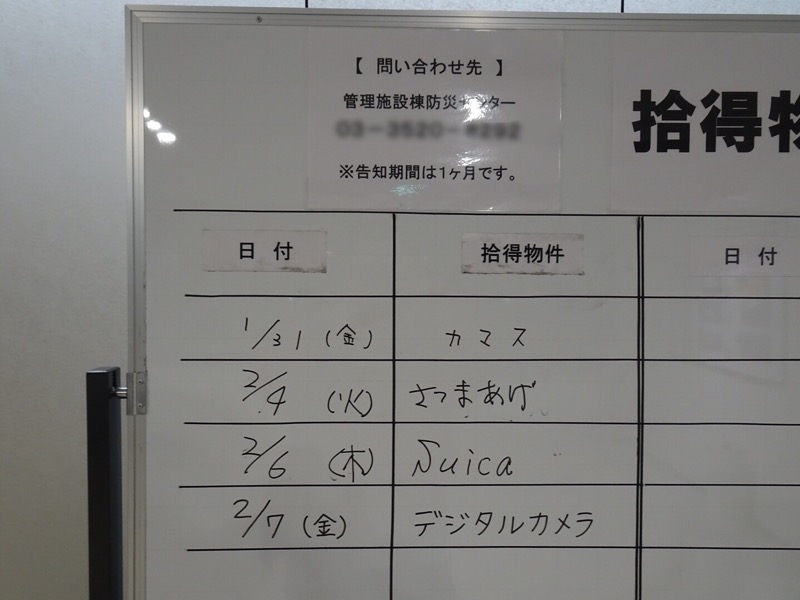 【 問い合わせ先 】
管理施設棟防災センター
※告知期間は1ヶ月です。
拾得物
日 付 拾得物件 日 付
1/31 (金) カマス
2/4 (火) さつまあげ
2/6 (木) Suica
2/7 (金) デジタルカメラ